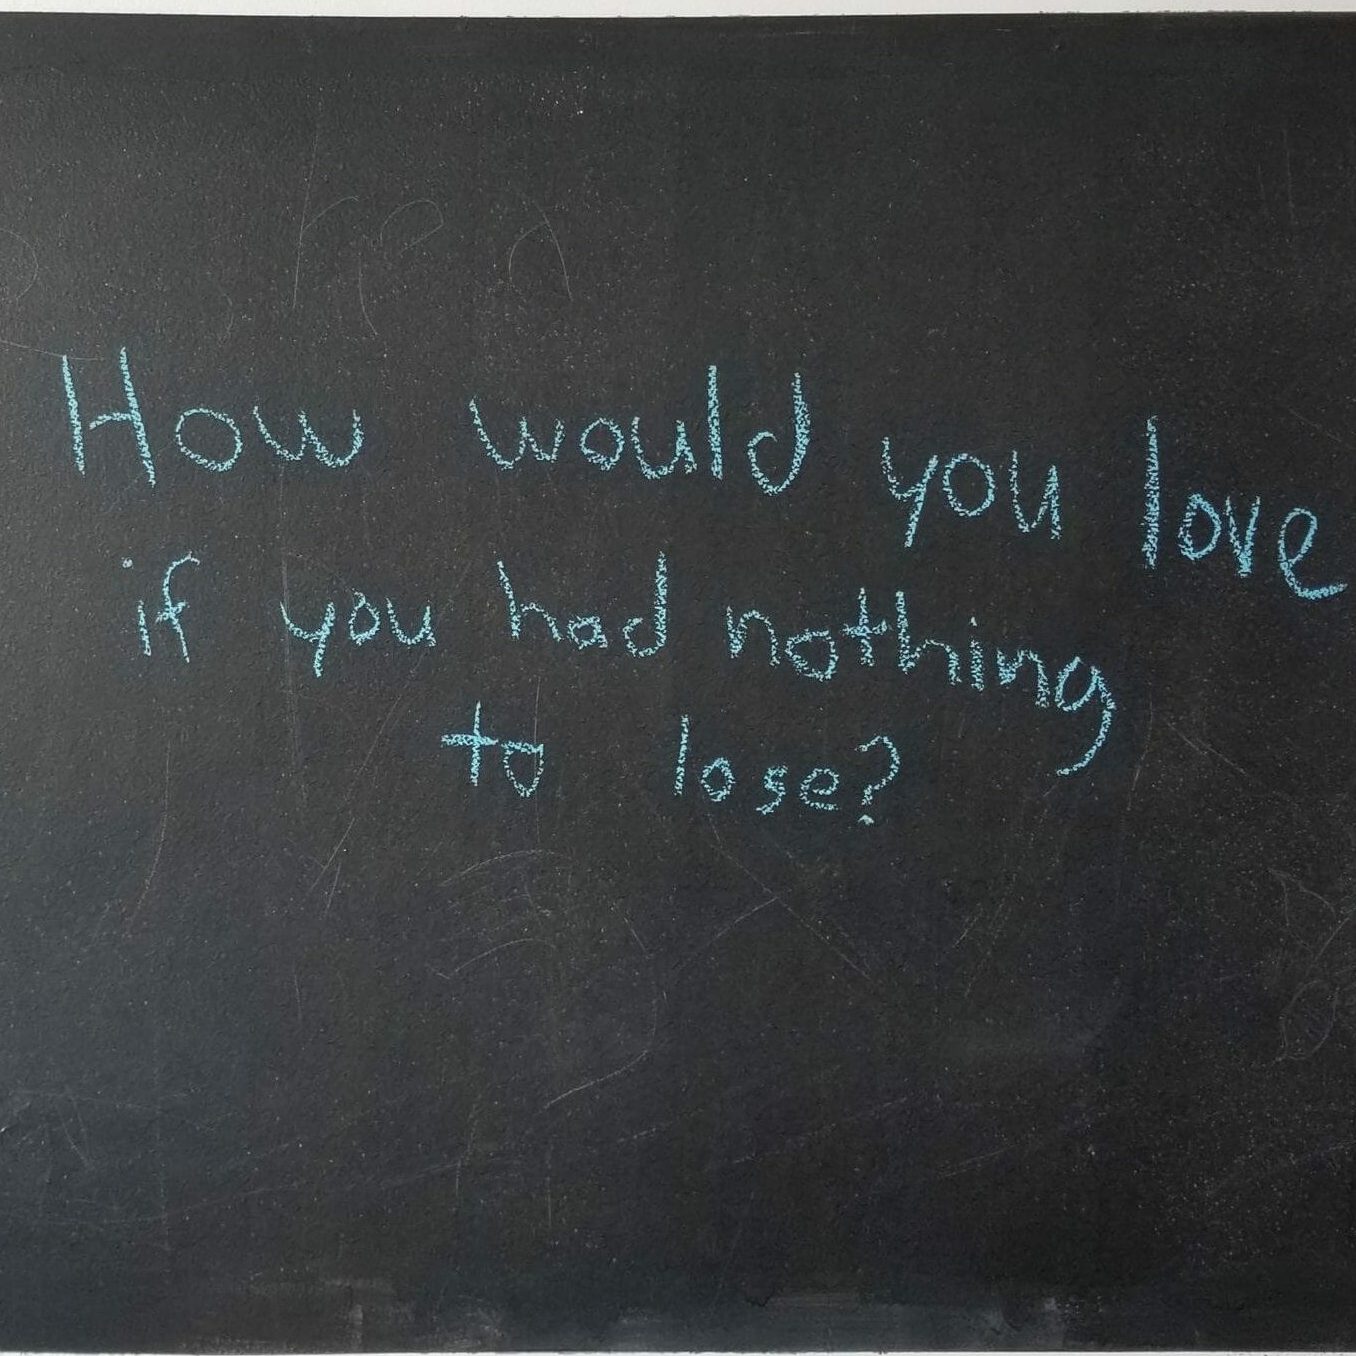 How would you love
if you had nothing
to lose?